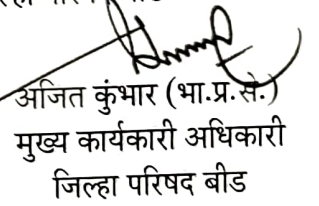 अजित कुंभार (भा.प्र.से.)
मुख्य कार्यकारी अधिकारी
जिल्हा परिषद बीड